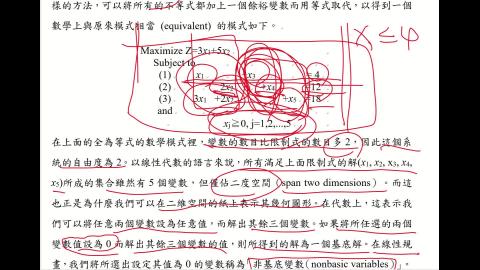 樣的方法，可以將所有的不等式都加上一個餘裕變數而用等式取代，以得到一個
數學上與原來模式相當 (equivalent) 的模式如下。
Maximize Z=3x₁+5x₂
Subject to
(1) x₁ +x₃ = 4
(2) 2x₂ +x₄ =12
(3) 3x₁ +2x₂ +x₅ =18
and
xⱼ≧0, j=1,2,...,5
x ≤ 4
在上面的全為等式的數學模式裡，變數的數目比限制式的數目多 2，因此這個系
統的自由度為 2。以線性代數的語言來說，所有滿足上面限制式的解(x₁, x₂, x₃, x₄,
x₅)所成的集合雖然有 5 個變數，但僅佔二度空間（span two dimensions）。而這
也正是為什麼我們可以在二維空間的紙上表示其幾何圖形。在代數上，這表示我
們可以將任意兩個變數設為任意值，而解出其餘三個變數。如果將所任選的兩個
變數值設為 0 而解出其餘三個變數的值，則所得到的解為一個基底解。在線性規
畫，我們將所選出設定其值為 0 的變數稱為「非基底變數(nonbasic variables)」，